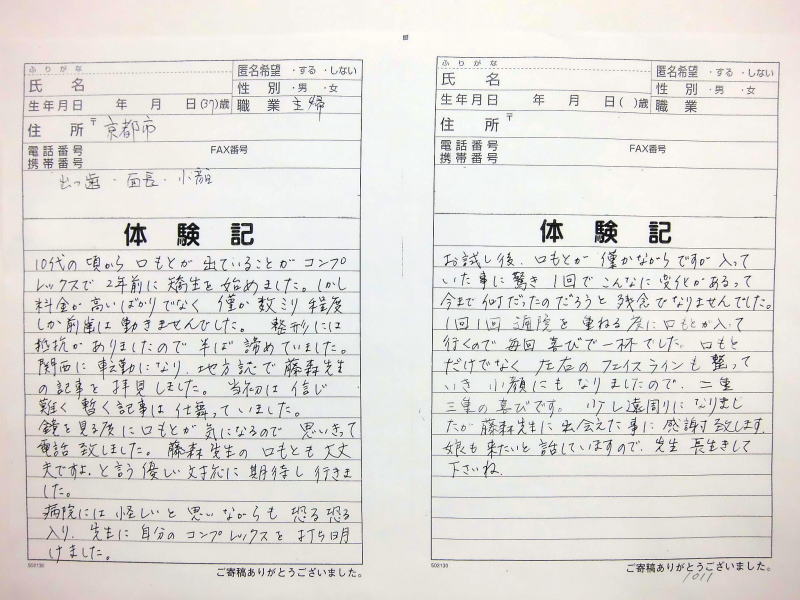 ふりがな
氏名
匿名希望 ・する ・しない
性別 ・男 ・女
生年月日 年 月 日(37)歳
職業 主婦
住所 〒 京都市
電話番号 FAX番号
携帯番号
出っ歯・面長・小顔
体験記
10代の頃から口もとが出ていることがコンプ
レックスで2年前に矯生を始めました。しかし
料金が高いばかりでなく 僅か数ミリ程度
しか前歯は動きませんでした。 整形には
抵抗がありましたので半ば諦めていました。
関西に転勤になり、地方誌で藤森先生
の記事を拝見しました。 当初は信じ
難く暫く記事は仕舞っていました。
鏡を見る度に口もとが気になるので 思いきって
電話致しました。藤森先生の口もとも大丈
夫ですよ、と言う優しい対応に期待し行きま
した。
病院には怪しいと思いながらも恐る恐る
入り、先生に自分のコンプレックスを打ち明
けました。
502130
ご寄稿ありがとうございました。
ふりがな
氏名
匿名希望 ・する ・しない
性別 ・男 ・女
生年月日 年 月 日( )歳
職業
住所 〒
電話番号 FAX番号
携帯番号
体験記
お試し後、口もとが僅かながらですが入って
いた事に驚き1回でこんなに変化があるって
今まで何だったのだろうと残念でなりませんでした。
1回1回通院を重ねる度に口もとが入って
行くので毎回喜びで一杯でした。口もと
だけでなく左右のフェイスラインも整って
いき 小顔にもなりましたので、二重
三重の喜びです。 少し遠周りになりまし
たが藤森先生に出会えた事に感謝致します。
娘も来たいと話していますので、先生 長生きして
下さいね。
502130
ご寄稿ありがとうございました。
1011